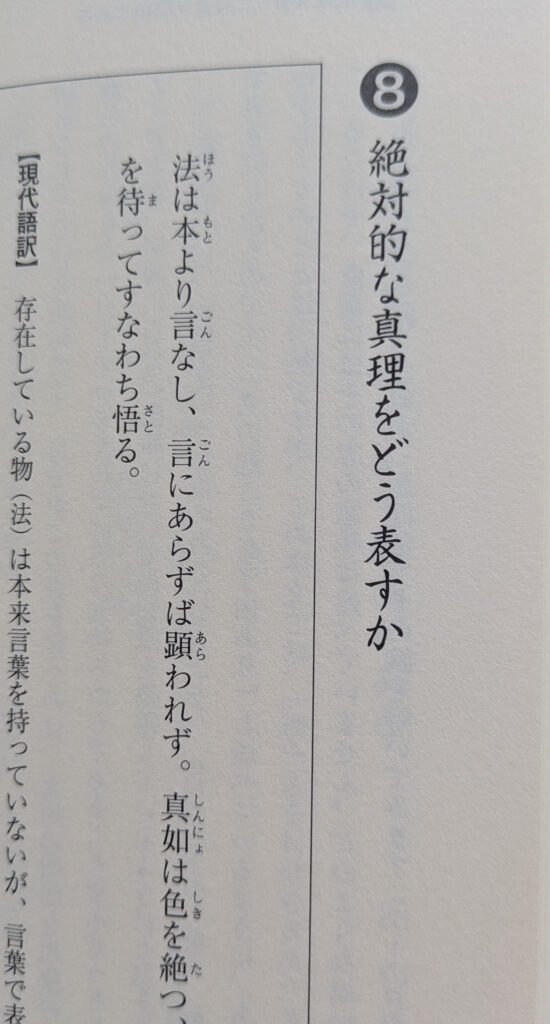 8 絶対的な真理をどう表すか
法は本より言なし、言にあらずば顕われず。真如は色を絶つ、
を待ってすなわち悟る。
【現代語訳】 存在している物（法）は本来言葉を持っていないが、言葉で表